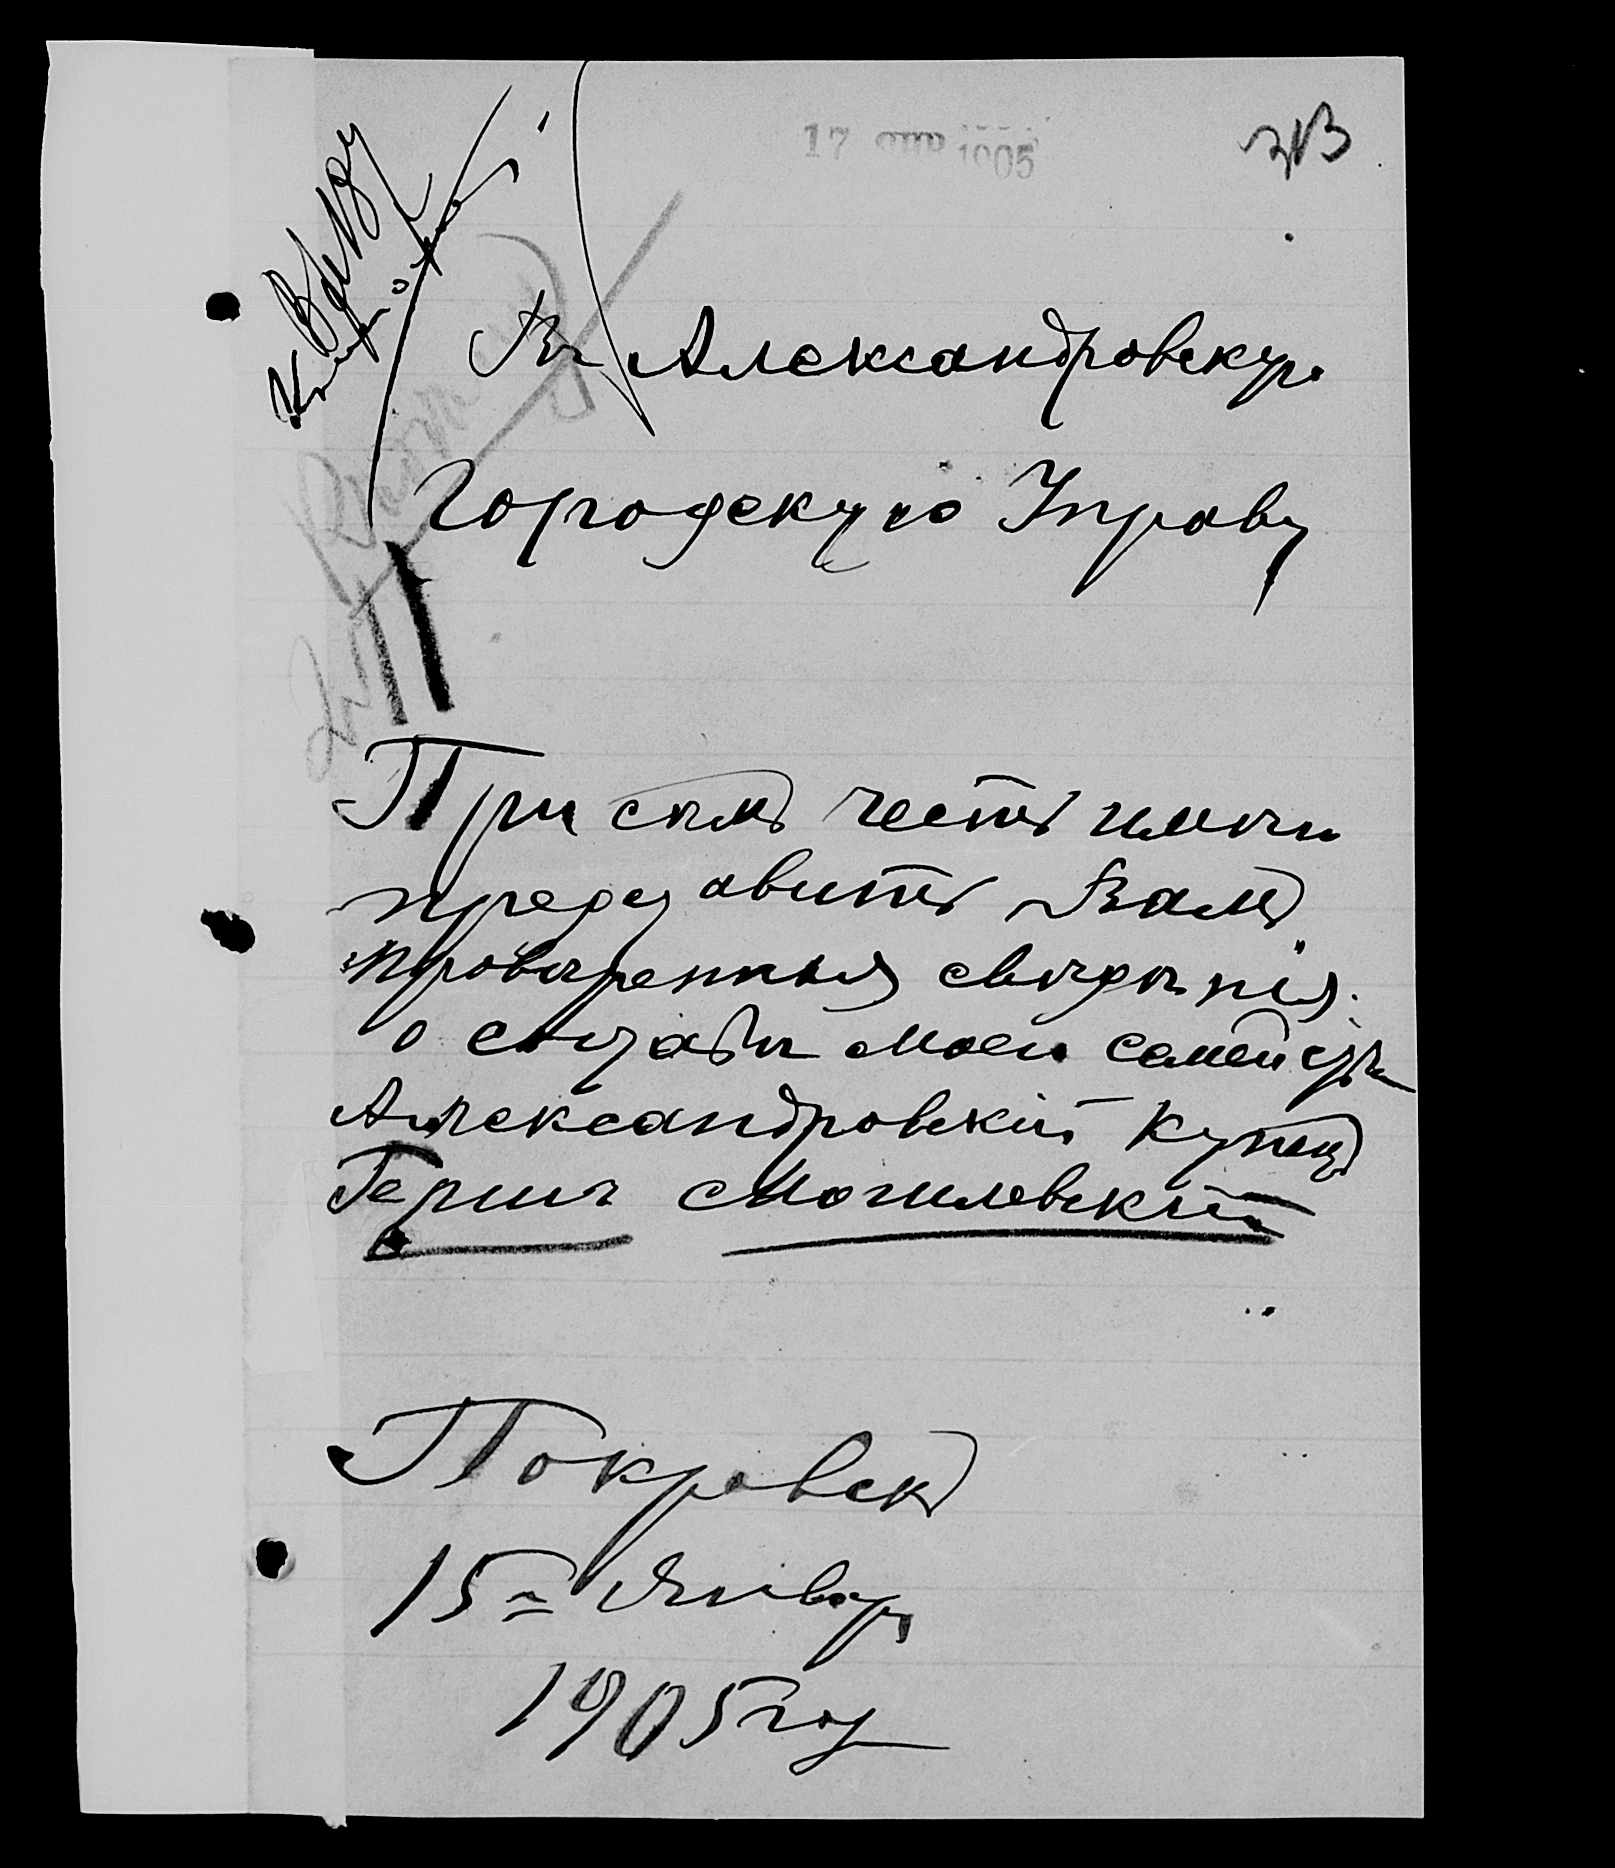 17 ЯНВ 1905
313
Въ Александровскую
Городскую Управу
При семъ честь имѣю
представить Вамъ
провѣренныя свѣдѣнiя
о составѣ моего семейства
Александровскiй купецъ
Гершъ Могилевскiй
Покровскъ
15го Января
1905 год